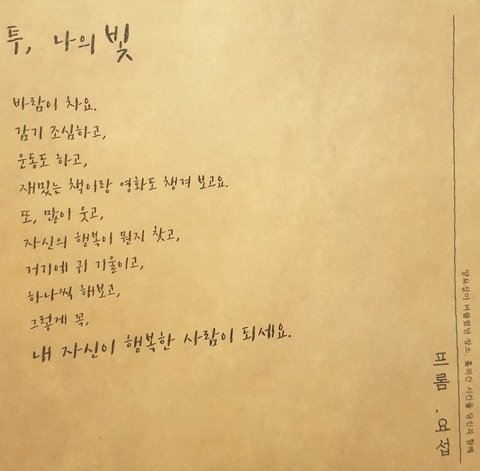 투, 나의 빛
바람이 차요.
감기 조심하고,
운동도 하고,
재밌는 책이랑 영화도 챙겨 보고요.
또, 많이 웃고,
자신의 행복이 뭔지 찾고,
거기에 귀 기울이고,
하나씩 해보고,
그렇게 꼭,
내 자신이 행복한 사람이 되세요.
양요섭이 머물렀던 장소, 흘러간 시간을 당신과 함께
프롬, 요섭